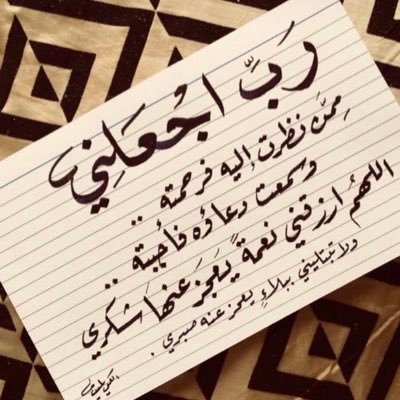 رَبِّ اجْعَلنِي
مِمَّن نظرت إليه فرحمته ..
وسمعت دعاؤه فأجبته ..
اللهمُ ارزقني نعمةً يَعجَز عَنهَا شكري
ولا تبتليني ببلاءٍ يعجز عنه صبري .